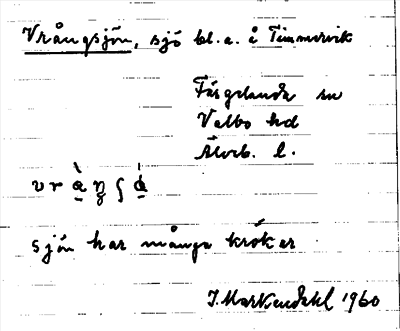 Vrångsjön, sjö bl. a. i Timmervik
Färgelanda sn
Valbo hd
Älvsb. l.
sjön har många krökar
J. Markendahl 1960